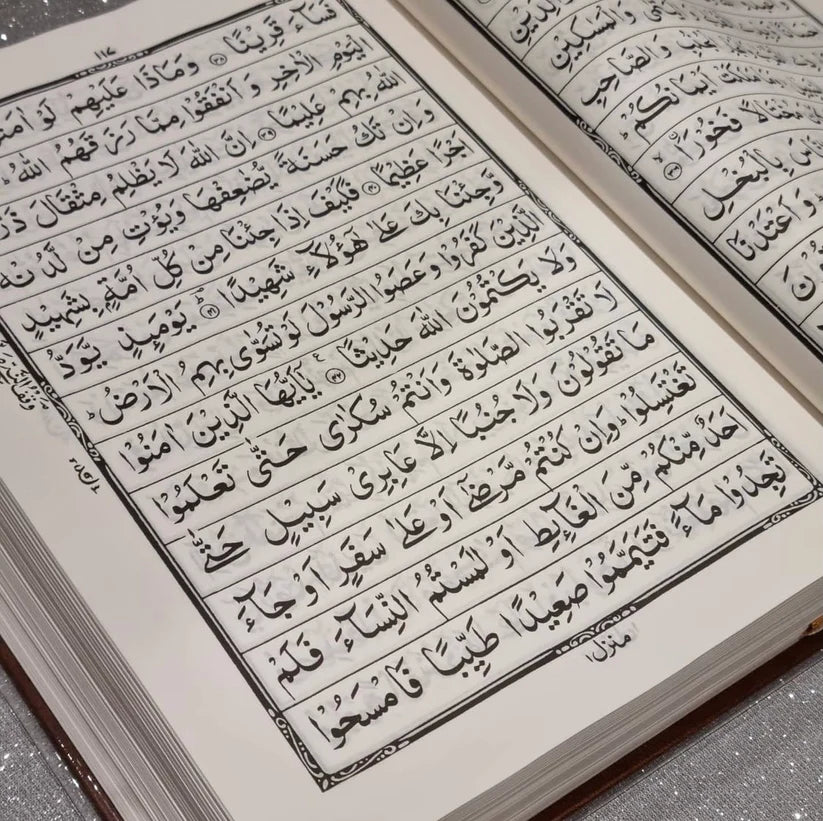 وَالَّذِيْنَ
وَالْمَسٰكِيْنِ
وَالصَّاحِبِ
اَيْمَانُكُمْ
فَخُوْرًا
بِالْبُخْلِ
وَاَعْتَدْنَا
فَسَآءَ قَرِيْنًا ﴿٣٨﴾ وَمَاذَا عَلَيْهِمْ لَوْ
الْيَوْمِ الْاٰخِرِ وَاَنْفَقُوْا مِمَّا رَزَقَهُمُ اللّٰهُ
اللّٰهُ بِهِمْ عَلِيْمًا ﴿٣٩﴾ اِنَّ اللّٰهَ لَا يَظْلِمُ مِثْقَالَ
وَاِنْ تَكُ حَسَنَةً يُّضٰعِفْهَا وَيُؤْتِ مِنْ لَّدُنْهُ
اَجْرًا عَظِيْمًا ﴿٤٠﴾ فَكَيْفَ اِذَا جِئْنَا مِنْ كُلِّ اُمَّةٍۭ بِشَهِيْدٍ
وَّجِئْنَا بِكَ عَلٰى هٰٓؤُلَآءِ شَهِيْدًا ﴿٤١﴾ يَوْمَئِذٍ يَّوَدُّ
الَّذِيْنَ كَفَرُوْا وَعَصَوُا الرَّسُوْلَ لَوْ تُسَوّٰى بِهِمُ الْاَرْضُ ؕ
وَلَا يَكْتُمُوْنَ اللّٰهَ حَدِيْثًا ﴿٤٢﴾ يٰٓاَيُّهَا الَّذِيْنَ اٰمَنُوْا
لَا تَقْرَبُوا الصَّلٰوةَ وَاَنْتُمْ سُكٰرٰى حَتّٰى تَعْلَمُوْا
مَا تَقُوْلُوْنَ وَلَا جُنُبًا اِلَّا عَابِرِيْ سَبِيْلٍ حَتّٰى
تَغْتَسِلُوْا ؕ وَاِنْ كُنْتُمْ مَّرْضٰٓى اَوْ عَلٰى سَفَرٍ اَوْ جَآءَ
اَحَدٌ مِّنْكُمْ مِّنَ الْغَآئِطِ اَوْ لٰمَسْتُمُ النِّسَآءَ فَلَمْ
تَجِدُوْا مَآءً فَتَيَمَّمُوْا صَعِيْدًا طَيِّبًا فَامْسَحُوْا
منزل ١